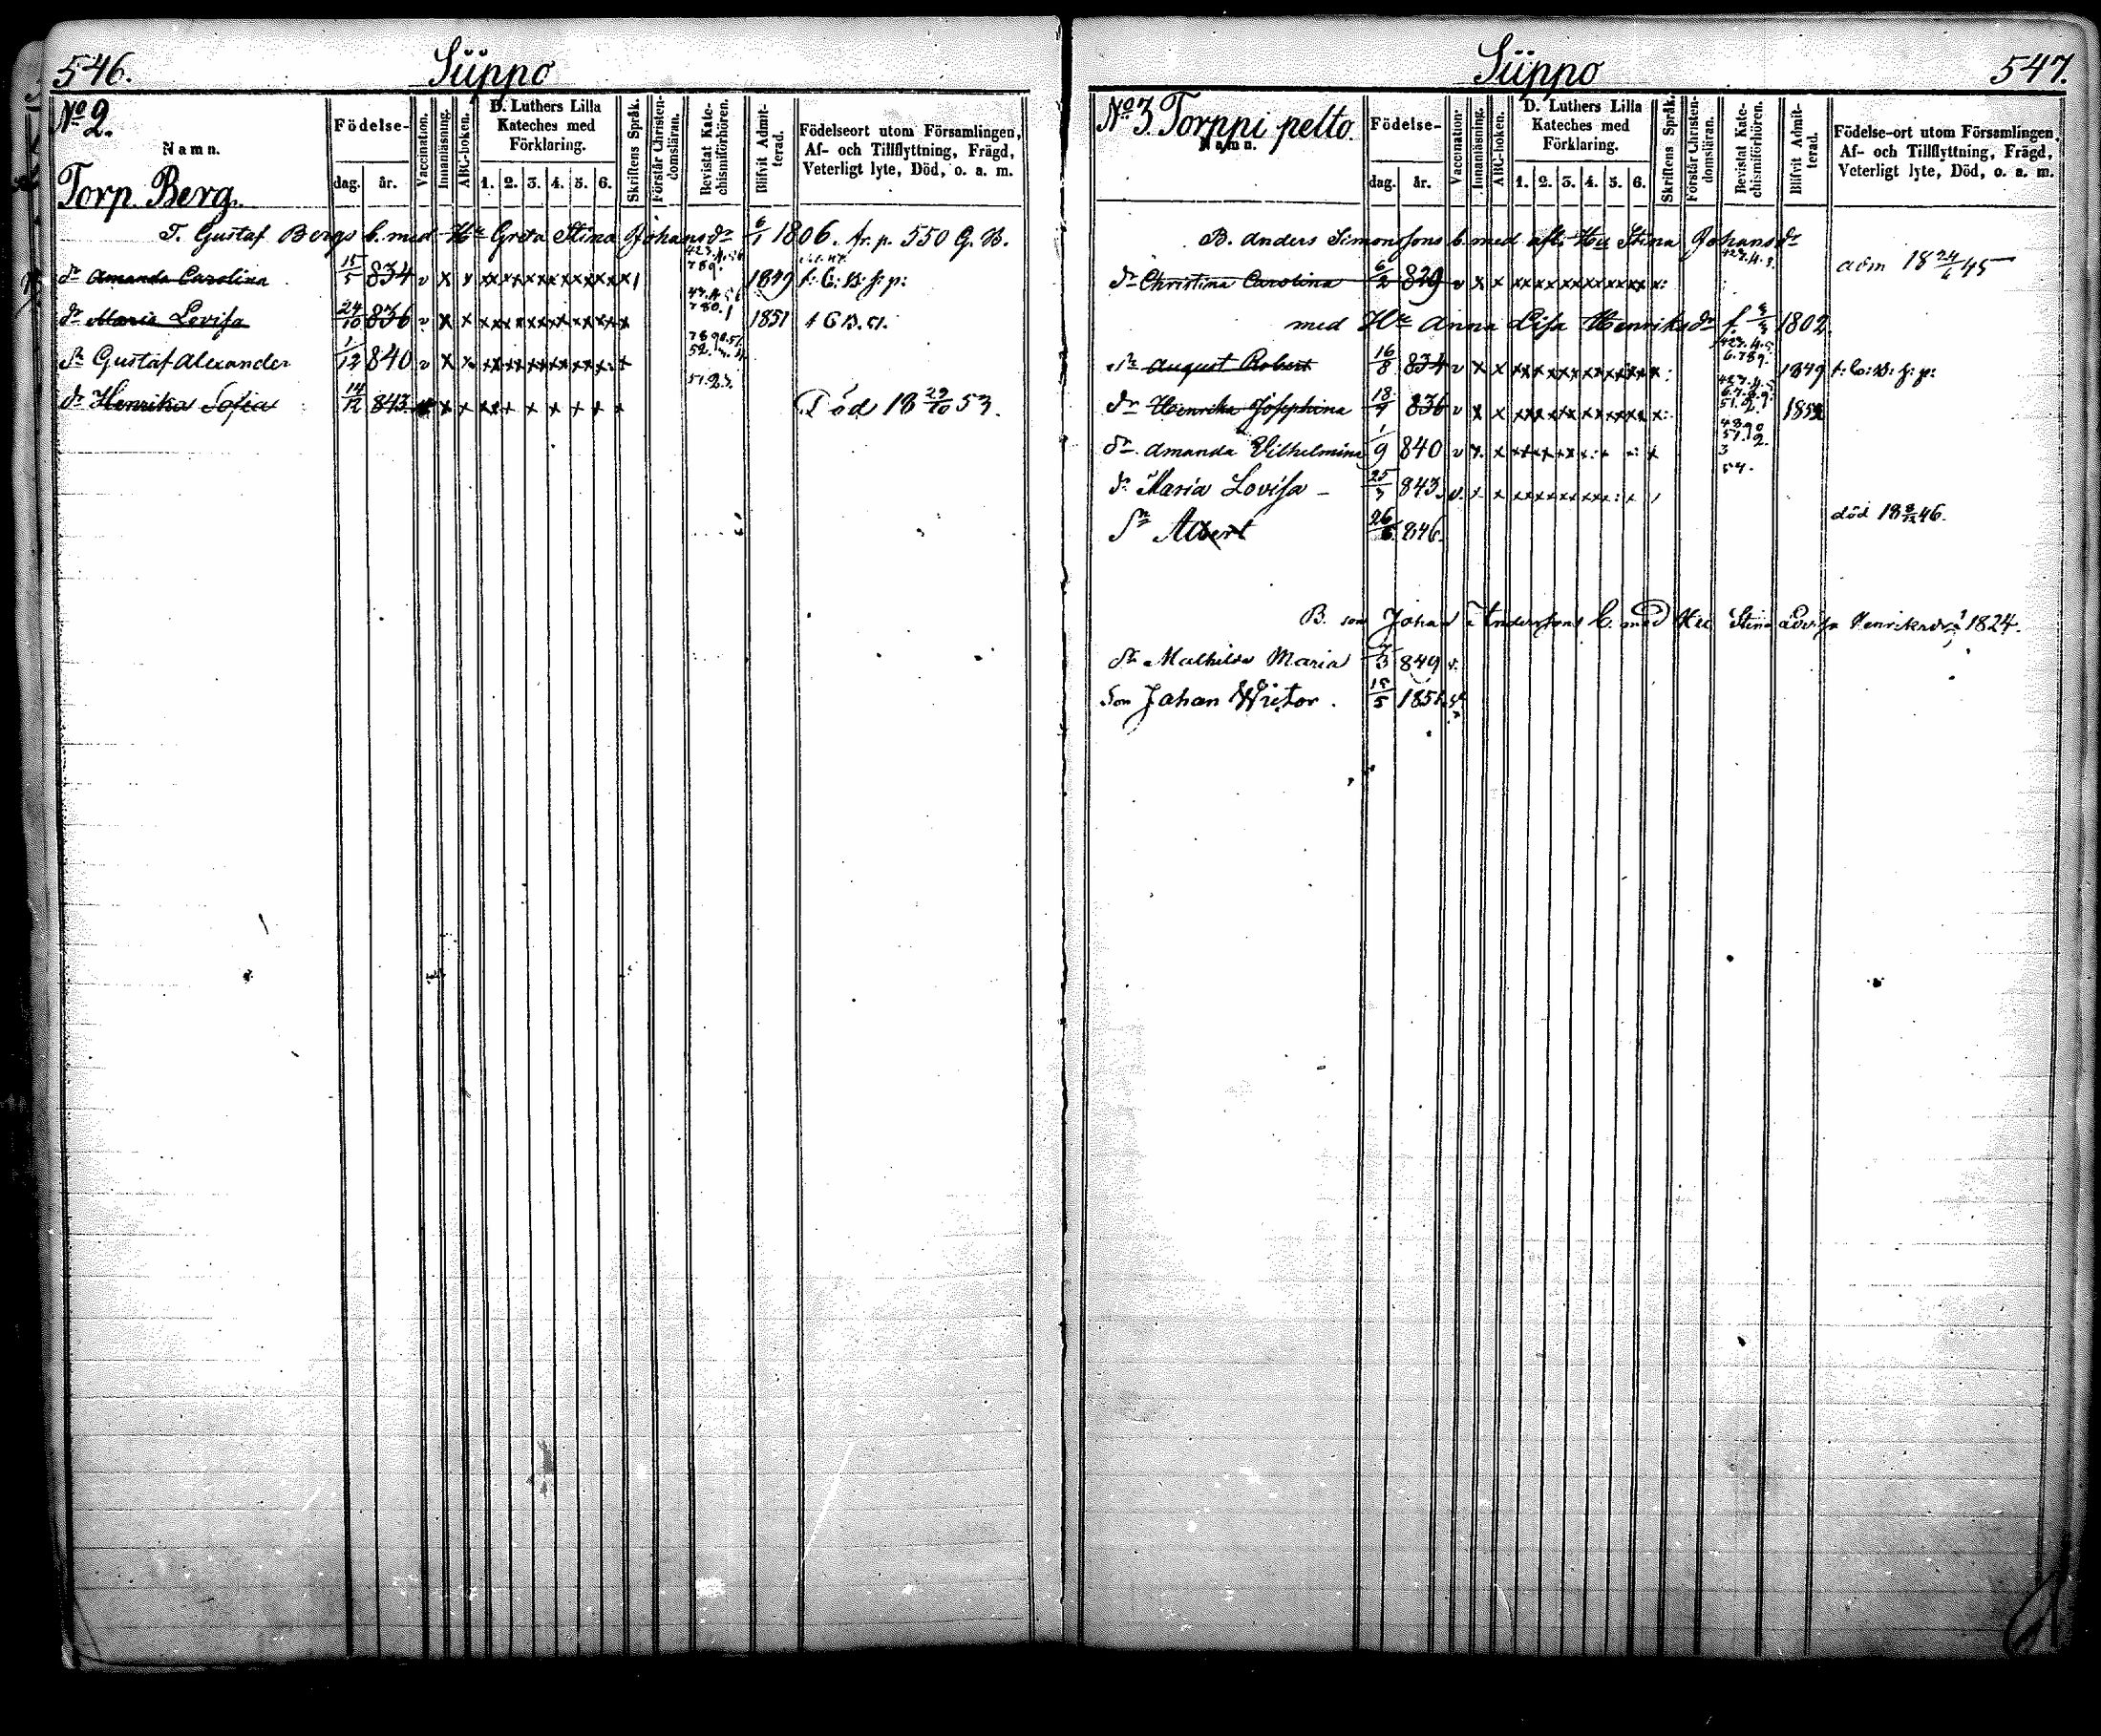 546.
Siippo
No 2.
Namn.
Födelse-
dag.
år.
Vaccination.
Innanläsning.
ABC-boken.
D. Luthers Lilla
Kateches med
Förklaring.
1. 2. 3. 4. 5. 6.
Skriftens Språk.
Förstår Christen-
domsläran.
Bevistat Kate-
chismiförhören.
Blifvit Admit-
terad.
Födelseort utom Församlingen,
Af- och Tillflyttning, Frägd,
Veterligt lyte, Död, o. a. m.
Torp. Berg.
T. Gustaf Bergs b. med Hu Greta Stina Johansdr 6/1 1806. fr. p. 550 G. B.
dr Amanda Carolina 15/5 834 v x x xxxxxxxxxxxx 789. 1849
dr Maria Lovisa 24/10 836 v x x xxxxxxxxxxxx 1851
Sn Gustaf Alexander 1/12 840 v x x xxxxxxxxxxx
dr Henrika Sofia 14/12 843 x x 51.2.3. Död 18 29/10 53.
547.
Siippo
No 3. Torppi pelto.
Namn.
Födelse-
dag.
år.
Vaccination.
Innanläsning.
ABC-boken.
D. Luthers Lilla
Kateches med
Förklaring.
1. 2. 3. 4. 5. 6.
Skriftens Språk.
Förstår Christen-
domsläran.
Bevistat Kate-
chismiförhören.
Blifvit Admit-
terad.
Födelse-ort utom Församlingen,
Af- och Tillflyttning, Frägd,
Veterligt lyte, Död, o. a. m.
B. Anders Simonssons b. med afl. Hu Stina Johansdr
dr Christina Carolina 6/2 829 v x x adm 18 24/6 45
med Hu Anna Lisa Henriksdr f. 1802
Sn August Robert 16/8 834 v x x 6.789. 1849
dr Henrika Josephina 836 v x x
dr Amanda Vilhelmina 1/9 840 v x x
dr Maria Lovisa 25/3 843. v. x x 54.
Sn Albert 846. död 46.
B. son Johan Anderssons b. med Hu Stina Lovisa Henriksdr 1824.
dr Mathilda Maria 849 v.
Son Johan Wictor. 15/5 1851.